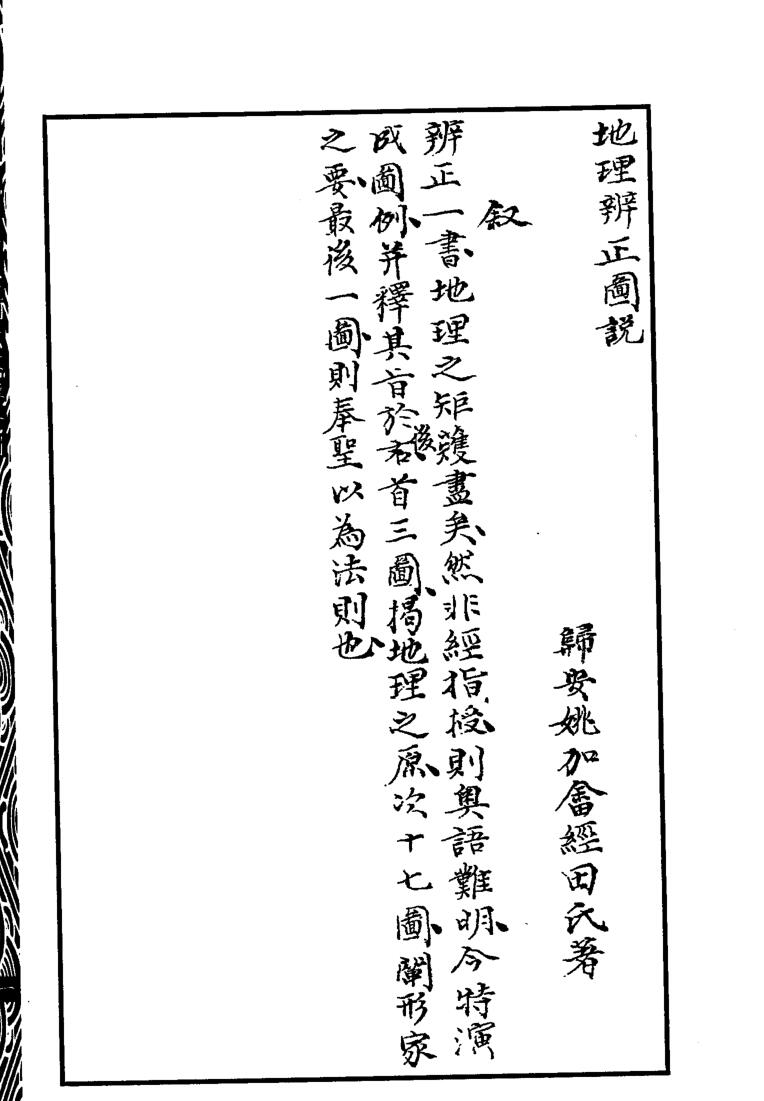 地理辨正圖説
歸安姚加畬經田氏著
叙
辨正一書、地理之矩矱盡矣、然非經指授、則奧語難明、今特演
成圖例、并釋其旨於右後首三圖、揭地理之原、次十七圖、闡形家
之要、最後一圖、則奉聖以為法則也、